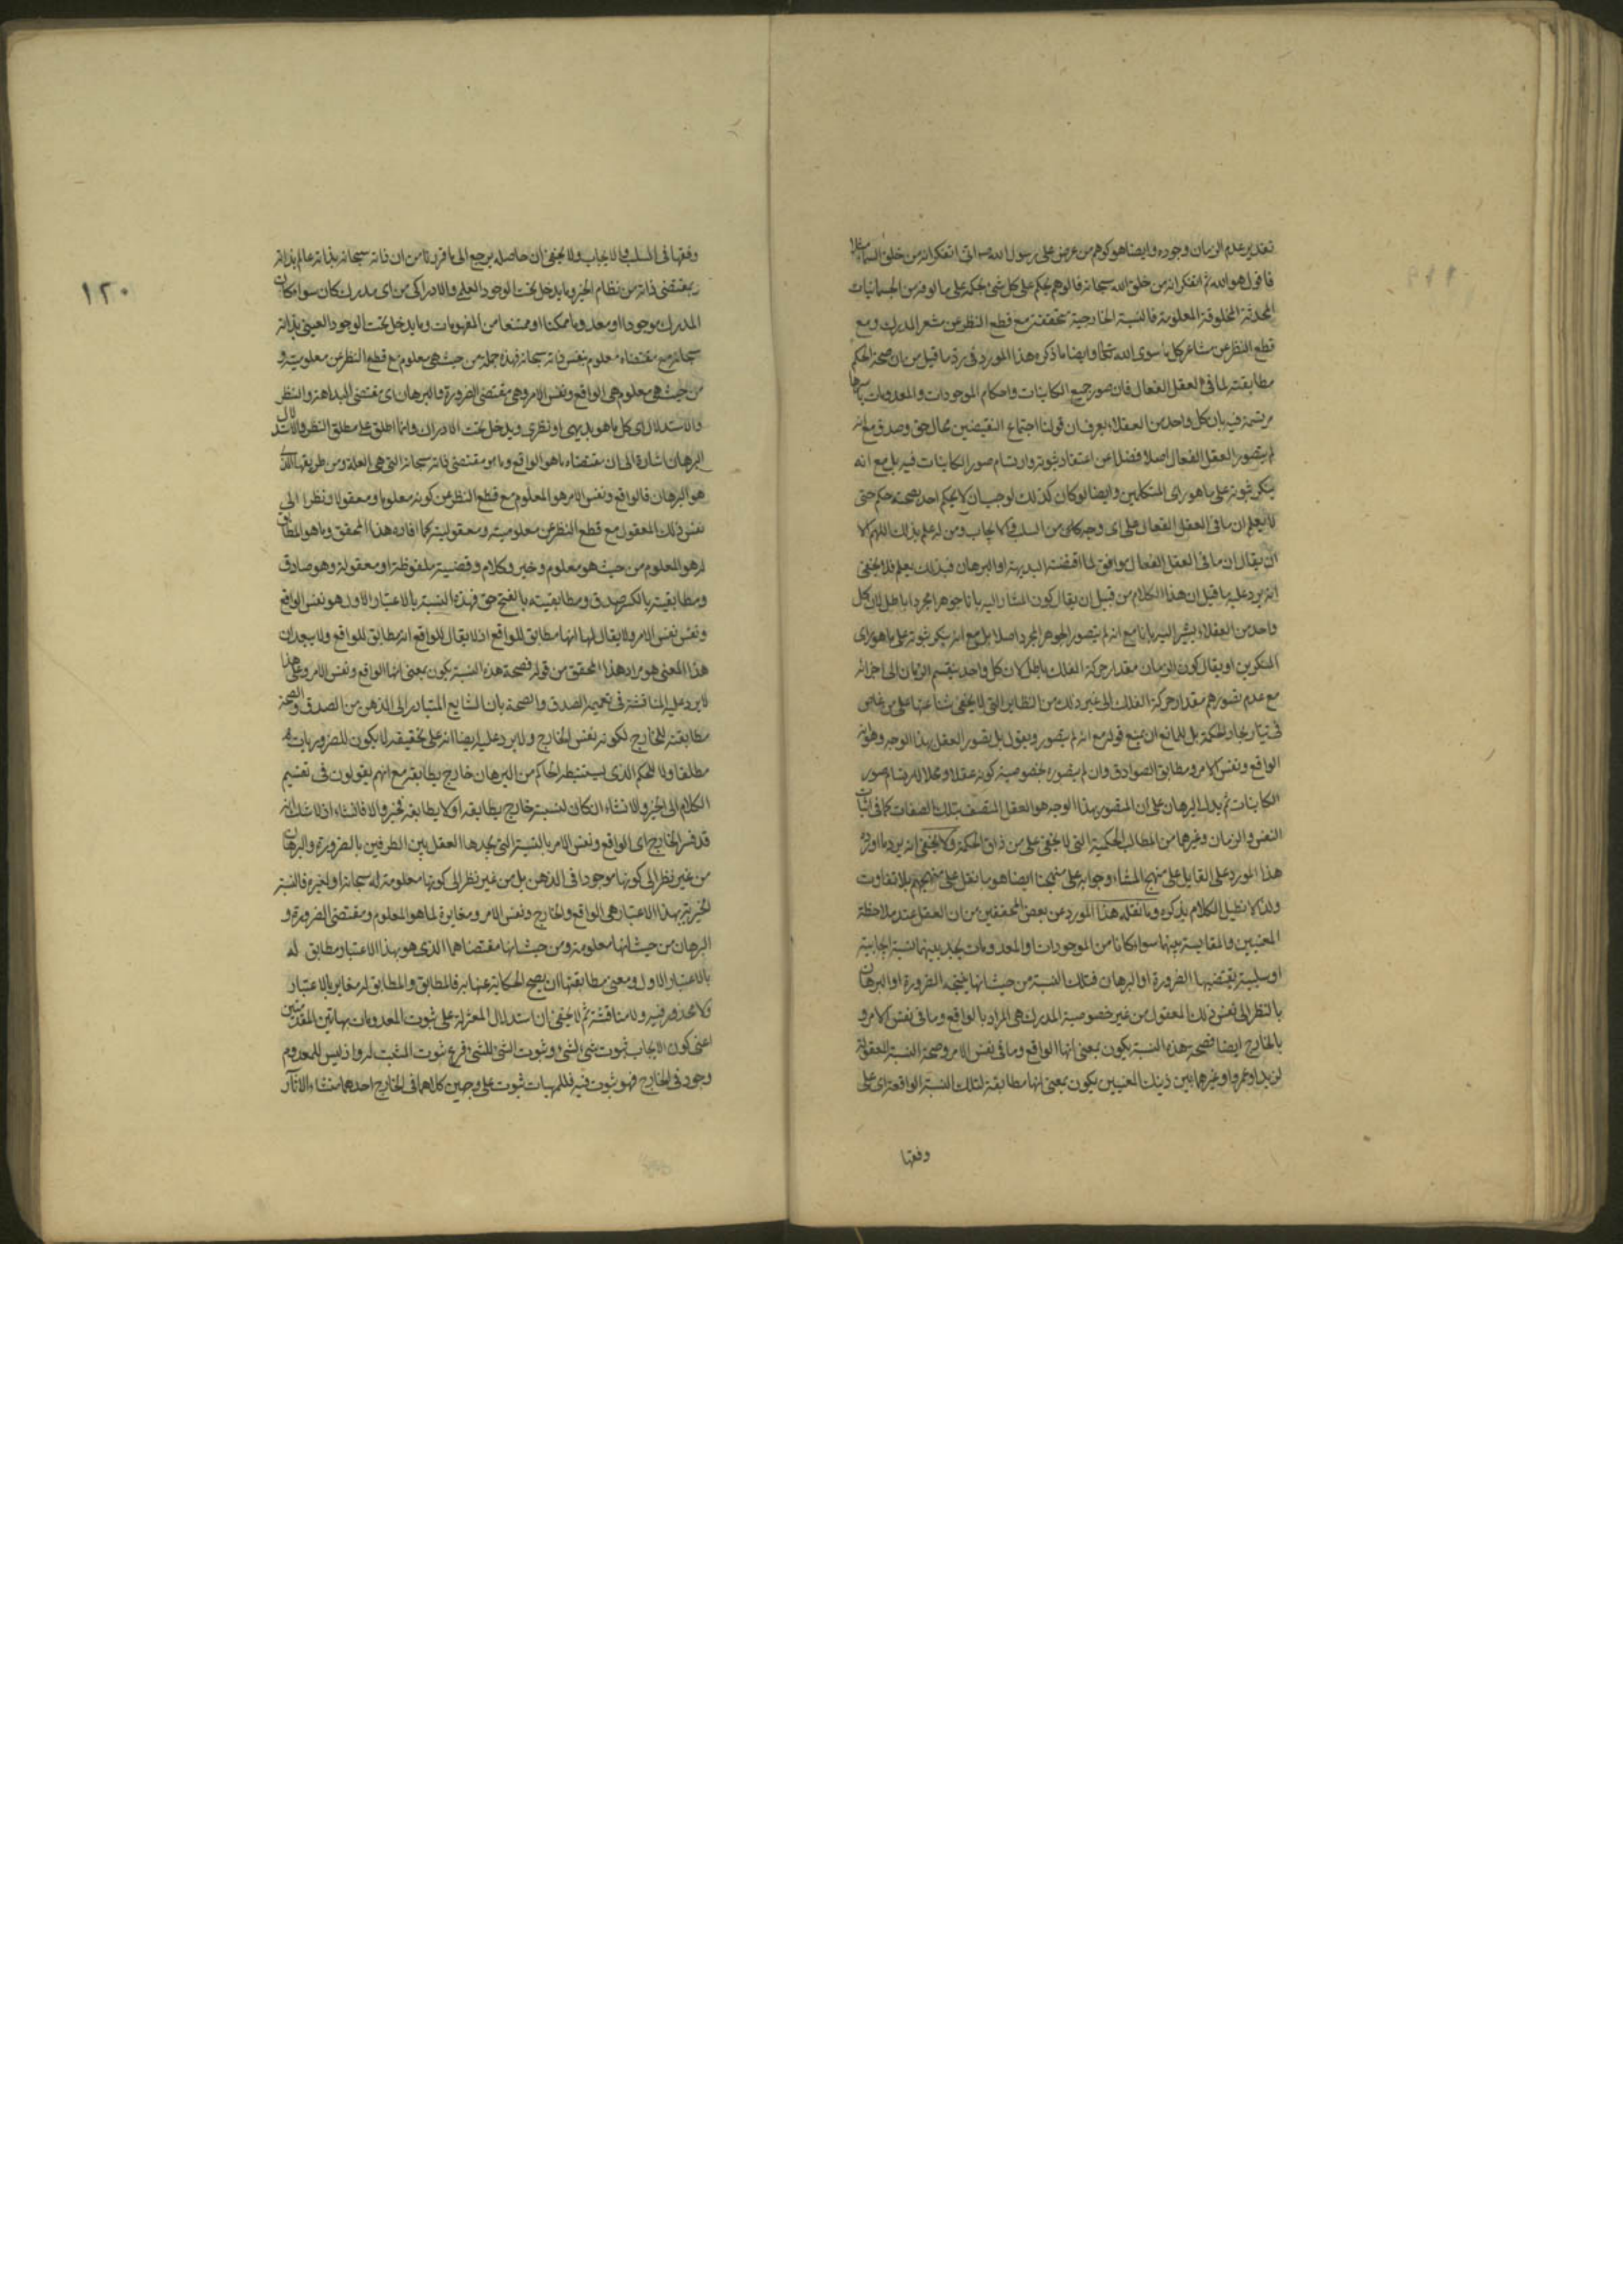 تقدير عدم الزمان وجوده وايضا هو كوهم من عرض على رسول الله انى اتفكر انه من خلق السماء
فاقول هو الله ثم اتفكر انه من خلق الله سبحانه فالوهم يحكم على كل شئ بحكمه على مالوفه من الجسمانيات
المحدثة المخلوقة المعلومة فالنسبة الخارجية متحققة مع قطع النظر عن مشعر المدرك ومع
قطع النظر عن مشاعر كل ما سوى الله تعالى وايضا ما ذكره هذا المورد فى رد ما قيل من ان صحة الحكم
مطابقته لما فى العقل الفعال فان صور جميع الكاينات واحكام الموجودات والمعدومات باسرها
مرتسمة فيه بان كل واحد من العقلاء يعرف ان قولنا اجتماع النقيضين محال حق وصدق مع انه
لم يتصور العقل الفعال اصلا فضلا عن اعتقاد ثبوته وارتسام صور الكاينات فيه بل مع انه
ينكر ثبوته على ما هو راى المتكلمين وايضا لو كان كذلك لوجب ان لا يحكم احد بصحة حكم حتى
لا يعلم ان ما فى العقل الفعال على اى وجه كان من السلب والايجاب ومن له علم بذلك اللهم الا
ان يقال ان ما فى العقل الفعال موافق لما اقتضته البديهة او البرهان فبذلك يعلم فلا يخفى
انه يرد عليه ما قيل ان هذا الكلام من قبيل ان يقال كون المشار اليه بانا جوهرا مجردا باطل لان كل
واحد من العقلاء يشير اليه بانا مع انه لم يتصور الجوهر المجرد اصلا بل مع انه ينكر ثبوته على ما هو راى
المنكرين او يقال كون الزمان مقدار حركة الفلك باطل لان كل واحد يقسم الزمان الى اجزائه
مع عدم تصورهم مقدار حركة الفلك الى غير ذلك من النظاير التى لا يخفى شناعتها على من غاص
فى تيار بحار الحكمة بل للمانع ان يمنع قوله مع انه لم يتصور ويقول بل يتصور العقل بهذا الوجه وهو انه
الواقع ونفس الامر ومطابق الصوادق وان لم يتصوره بخصوصية كونه عقلا ومحلا لارتسام صور
الكاينات ثم يدل البرهان على ان المتصور بهذا الوجه هو العقل المتصف بتلك الصفات كما فى اثبات
النفس والزمان وغيرهما من المطالب الحكمية التى لا يخفى على من ذاق الحكمة ولا يخفى انه يرد ما اورده
هذا المورد على القايل على منهج المشاء وجوابه على منهجنا ايضا هو ما نقل على منهجهم بلا تفاوت
ولذا لا نطيل الكلام بذكره وما نقله هذا المورد عن بعض المحققين من ان العقل عند ملاحظة
المعنيين والمقايسة بينهما سواء كانا من الموجودات والمعدومات يجد بينهما نسبة ايجابية
او سلبية يقتضيها الضرورة او البرهان فتلك النسبة من حيث انها نتيجة الضرورة او البرهان
بالنظر الى نفس ذلك المعقول من غير خصوصية المدرك هى المراد بالواقع وما فى نفس الامر و
بالخارج ايضا فصحة هذه النسبة يكون بمعنى انها الواقع وما فى نفس الامر وصحة النسبة المعقولة
لزيد او عمرو او غيرهما بين ذينك المعنيين يكون بمعنى انها مطابقة لتلك النسبة الواقعة اى على
وفقها
١٢٠
وفقها فى السلب والايجاب ولا يخفى ان حاصله يرجع الى ما قررنا من ان ذاته سبحانه بذاته عالم بذاته
بمقتضى ذاته من نظام الخير وما يدخل تحت الوجود العلمى والادراكى من اى مدرك كان سواء كان
المدرك موجودا او معدوما ممكنا او ممتنعا من المفهومات وما يدخل تحت الوجود العينى بذاته
سبحانه مع مقتضاه معلوم بنفس ذاته سبحانه فهذه جملة من حيث هى معلوم مع قطع النظر عن معلوميته و
من حيث هى معلوم هى الواقع ونفس الامر وهى مقتضى الضرورة والبرهان اى مقتضى البداهة والنظر
والاستدلال اى كل ما هو بديهى او نظرى ويدخل تحت الادراك وانما اطلق على مطلق النظر والاستدلال
البرهان اشارة الى ان مقتضاه ما هو الواقع وما هو مقتضى ذاته سبحانه التى هى العلة ومن طريقها الذى
هو البرهان فالواقع ونفس الامر هو المعلوم مع قطع النظر عن كونه معلوما ومعقولا ونظرا الى
نفس ذلك المعقول مع قطع النظر عن معلوميته ومعقوليته كما افاده هذا المحقق وما هو المطابق
له هو المعلوم من حيث هو معلوم وخبر وكلام وقضية ملفوظة او معقولة وهو صادق
ومطابقيته بالكسر صدق ومطابقيته بالفتح حق فهذه النسبة بالاعتبار الاول هو نفس الواقع
ونفس نفس الامر ولا يقال لها انها مطابق للواقع اذ لا يقال للواقع انه مطابق للواقع ولا يبعد ان
هذا المعنى هو مراد هذا المحقق من قوله فصحة هذه النسبة يكون بمعنى انها الواقع ونفس الامر وعلى هذا
لا يرد عليه المناقشة فى تعميه الصدق والصحة بان الشايع المتبادر الى الذهن من الصدق والصحة
مطابقته للخارج لكونه نفس الخارج ولا يرد عليه ايضا انه على تحقيقه لا يكون للضروريات
مطلقا ولا للحكم الذى يستنبطه الحاكم من البرهان خارج يطابقه مع انهم يقولون فى تقسيم
الكلام الى الخبر والانشاء ان كان لنسبته خارج يطابقه او لا يطابقه فخبر والا فانشاء اذ لا شك انه
قد فسر الخارج اى الواقع ونفس الامر بالنسبة التى يجدها العقل بين الطرفين بالضرورة والبرهان
من غير نظر الى كونها موجودا فى الذهن بل من غير نظر الى كونها معلومة له سبحانه او لغيره فالنسبة
الخبرية بهذا الاعتبار هى الواقع والخارج ونفس الامر ومغايرة لما هو المعلوم ومقتضى الضرورة و
البرهان من حيث انها معلومة ومن حيث انها مقتضاهما الذى هو بهذا الاعتبار مطابق له
بالاعتبار الاول ومعنى مطابقتها ان يصح الحكاية عنها به فالمطابق والمطابق له مغاير بالاعتبار
ولا محذور فيه ولا مناقشة ثم لا يخفى ان استدلال المعتزلة على ثبوت المعدومات بهاتين المقدمتين
اعنى كون الايجاب ثبوت شئ لشئ وثبوت الشئ للشئ فرع ثبوت المثبت له واذ ليس للمعدوم
وجود فى الخارج فهو ثبوت فيه فللمهيات ثبوت على وجهين كلاهما فى الخارج احدهما منشاء الاثار